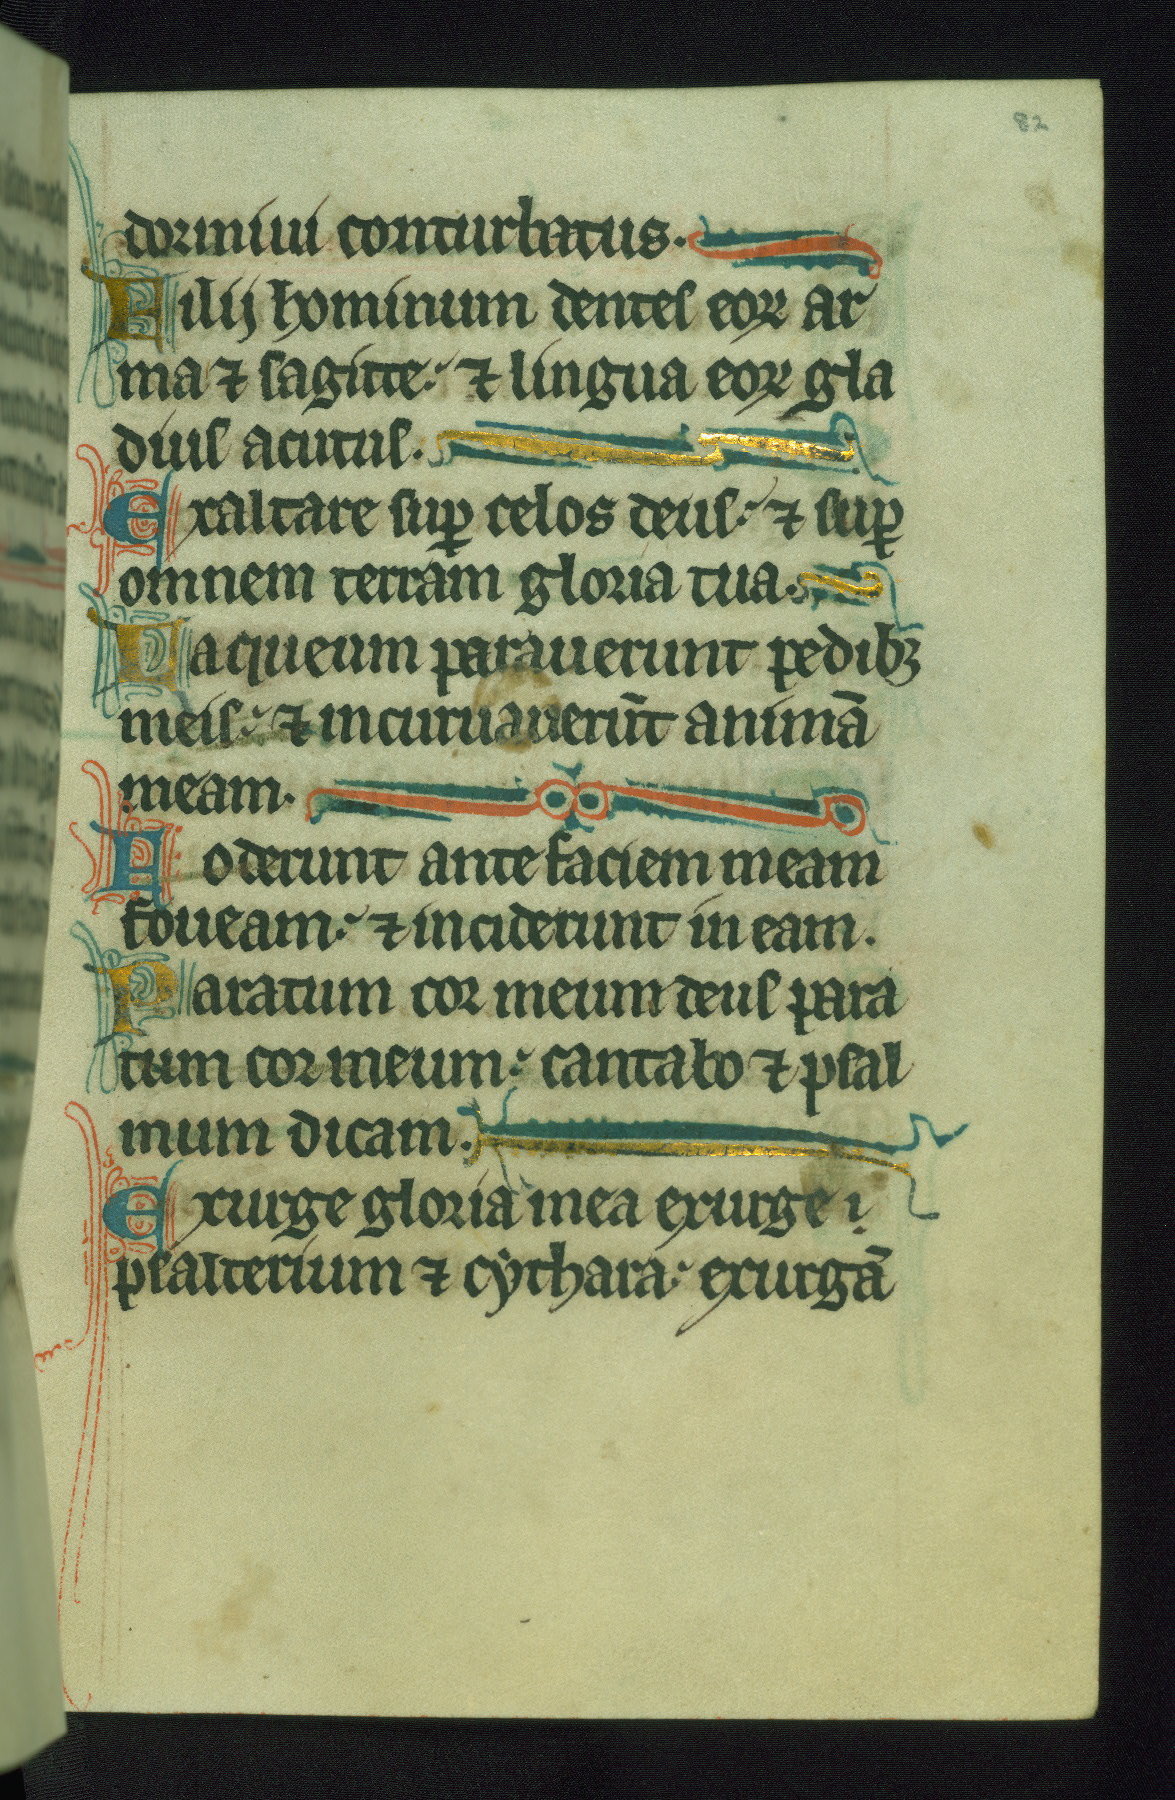 82
dormiui conturbatus.
Filij hominum dentes eoꝝ ar
ma ⁊ sagitte: ⁊ lingua eoꝝ gla
dius acutus.
Exaltare suꝑ celos deus: ⁊ suꝑ
omnem terram gloria tua.
Laqueum parauerunt pedibꝫ
meis: ⁊ incuruauerūt animā
meam.
Foderunt ante faciem meam
foueam: ⁊ inciderunt in eam.
Paratum cor meum deus para
tum cor meum: cantabo ⁊ psal
mum dicam.
Exurge gloria mea exurge i
psalterium ⁊ cythara: exurgā